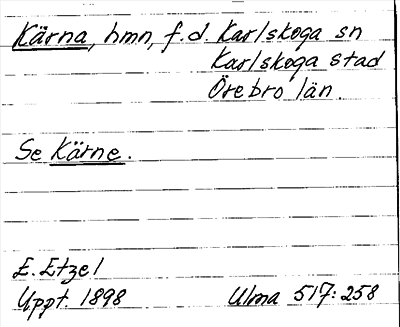 Kärna, hmn, f.d. Karlskoga sn
Karlskoga stad
Örebro län.
Se Kärne.
E. Etzel
Uppt. 1898 Ulma 517:258